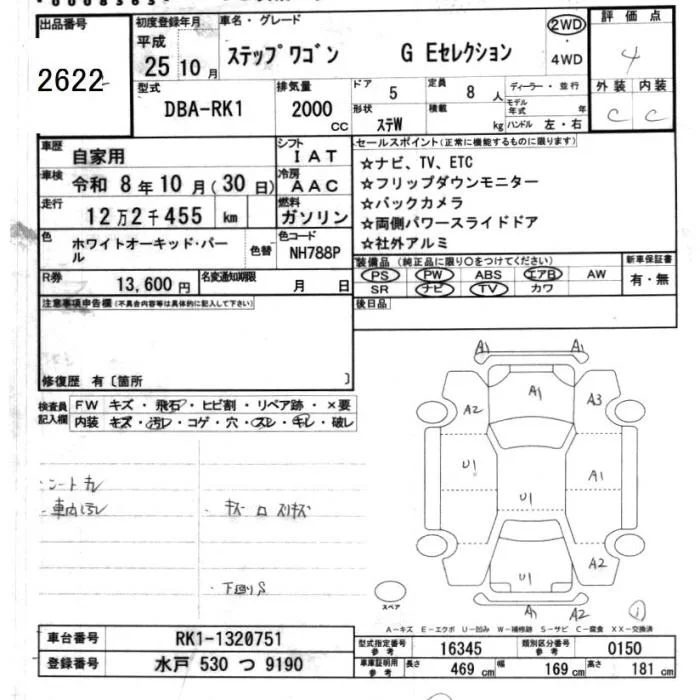 出品番号
2622
初度登録年月
平成
25 10 月
車名・グレード
ステップワゴン G Eセレクション
2WD
・
4WD
評価点
4
外装 内装
C C
型式
DBA-RK1
排気量
2000
CC
ドア
5
定員
8 人
形状
ステW
積載
kg
ディーラー・並行
モデル年式 年
ハンドル 左・右
車歴
自家用
シフト
IAT
車検
令和 8年10月(30日)
冷房
AAC
走行
12万2千455 km
燃料
ガソリン
色
ホワイトオーキッド・パール
色替
色コード
NH788P
R券
13,600円
名変通知期限
月 日
セールスポイント(正常に機能するものに限ります)
☆ナビ、TV、ETC
☆フリップダウンモニター
☆バックカメラ
☆両側パワースライドドア
☆社外アルミ
装備品(純正品に限り○をつけてください)
PS PW ABS エアB AW
SR ナビ TV カワ
新車保証書
有・無
後日品
注意事項申告欄(不具合内容等は具体的に記入して下さい)
修復歴 有〔箇所 〕
検査員記入欄
FW キズ・飛石・ヒビ割・リペア跡・×要
内装 キズ・汚レ・コゲ・穴・スレ・キレ・破レ
・シートキレ
・車内汚レ
・下廻りS
A1 A1
A1
A2 A3
U1
A1
U1
A2
U1
A1 A2
スペア
A－キズ E－エクボ U－凹み W－補修跡 S－サビ C－腐食 XX－交換済
車台番号
RK1-1320751
登録番号
水戸 530 つ 9190
型式指定番号 参考
16345
類別区分番号 参考
0150
車庫証明用 参考
長さ 469 cm 幅 169 cm 高さ 181 cm